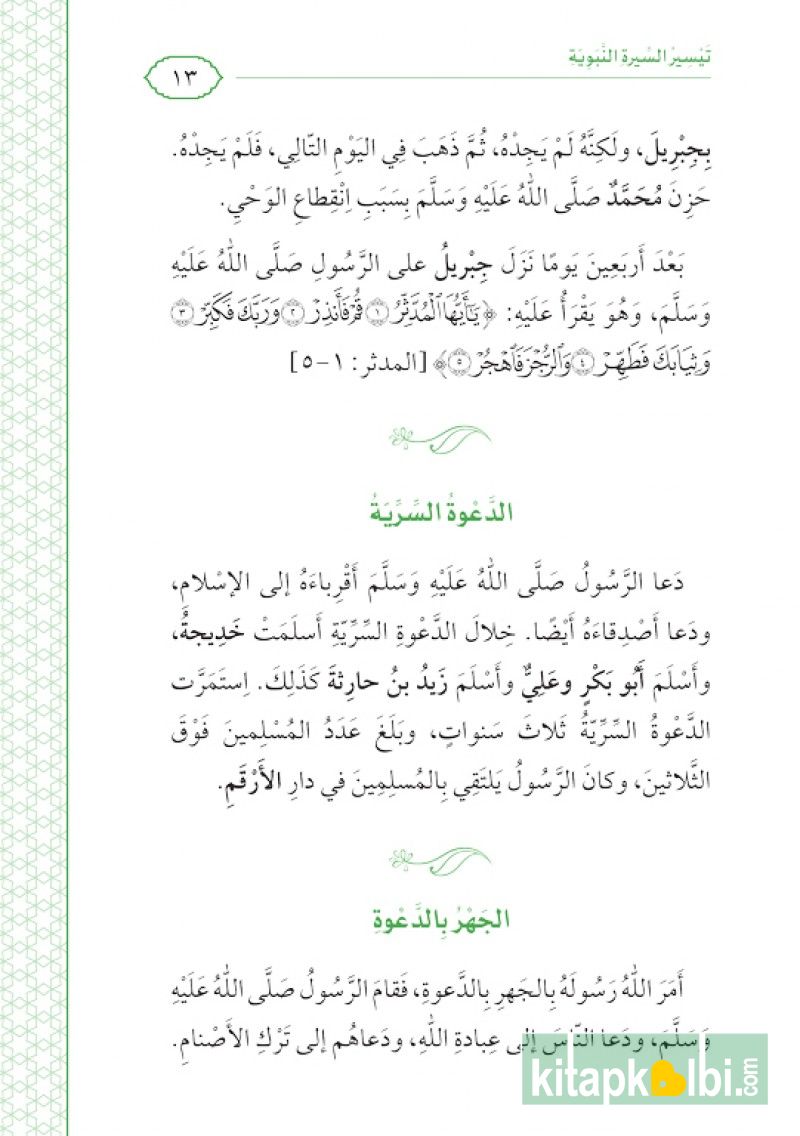 تَيْسِيرُ السِّيرةِ النَّبَوِيَةِ
١٣
بِجِبْرِيلَ، ولَكِنَّهُ لَمْ يَجِدْهُ، ثُمَّ ذَهَبَ فِي اليَوْمِ التّالِي، فَلَمْ يَجِدْهُ.
حَزِنَ مُحَمَّدٌ صَلَّى اللهُ عَلَيْهِ وَسَلَّمَ بِسَبَبِ اِنْقِطاعِ الوَحْيِ.
بَعْدَ أَربَعِينَ يَومًا نَزَلَ جِبْرِيلُ على الرَّسُولِ صَلَّى اللهُ عَلَيْهِ
وَسَلَّمَ، وَهُوَ يَقْرَأُ عَلَيْهِ: ﴿يَٰٓأَيُّهَا ٱلۡمُدَّثِّرُ ١ قُمۡ فَأَنذِرۡ ٢ وَرَبَّكَ فَكَبِّرۡ ٣
وَثِيَابَكَ فَطَهِّرۡ ٤ وَٱلرُّجۡزَ فَٱهۡجُرۡ ٥﴾ [المدثر: ١-٥]
الدَّعْوةُ السِّرِّيَةُ
دَعا الرَّسُولُ صَلَّى اللهُ عَلَيْهِ وَسَلَّمَ أَقْرِباءَهُ إلى الإسْلامِ،
ودَعا أَصْدِقاءَهُ أَيْضًا. خِلالَ الدَّعْوةِ السِّرِّيّةِ أَسلَمَتْ خَدِيجةُ،
وأَسْلَمَ أَبُو بَكْرٍ وعَلِيٌّ وأَسْلَمَ زَيدُ بنُ حارِثةَ كَذَلِكَ. اِستَمَرَّت
الدَّعْوةُ السِّرِّيّةُ ثَلاثَ سَنواتٍ، وبَلَغَ عَدَدُ المُسْلِمينَ فَوْقَ
الثَّلاثينَ، وكانَ الرَّسُولُ يَلتَقِي بِالمُسلِمِينَ في دارِ الأَرْقَمِ.
الجَهْرُ بِالدَّعْوةِ
أَمَرَ اللهُ رَسُولَهُ بِالجَهرِ بِالدَّعوةِ، فَقامَ الرَّسُولُ صَلَّى اللهُ عَلَيْهِ
وَسَلَّمَ، ودَعا النّاسَ إلى عِبادةِ اللهِ، ودَعاهُم إلى تَرْكِ الأَصْنامِ.
kitapkalbi.com